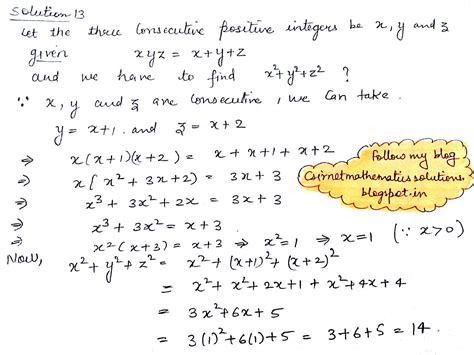 Solution 13
Let the three Consecutive positive integers be x, y and z
given xyz = x+y+z
and we have to find x²+y²+z² ?
∵ x, y and z are Consecutive, we Can take.
y = x+1 and z = x+2
⇒ x(x+1)(x+2) = x + x+1 + x+2
⇒ x[x²+3x+2) = 3x+3
⇒ x³+3x²+2x = 3x+3
⇒ x³+3x² = x+3
⇒ x²(x+3) = x+3 ⇒ x²=1 ⇒ x=1 (∵ x>0)
Now, x²+y²+z² = x²+(x+1)²+(x+2)²
= x²+x²+2x+1+x²+4x+4
= 3x²+6x+5
= 3(1)²+6(1)+5 = 3+6+5 = 14.
Follow my blog
blogspot.in